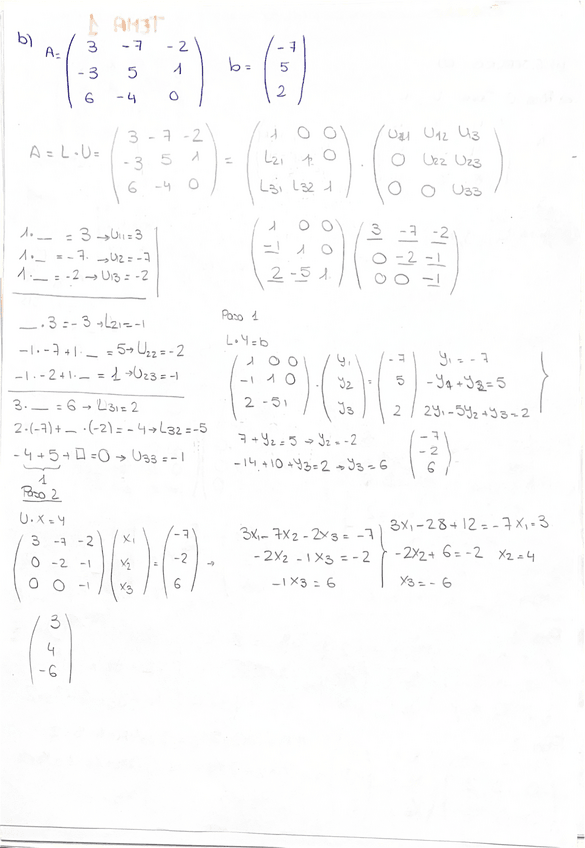 TEMA 1
b) A= ( 3 -7 -2 ; -3 5 1 ; 6 -4 0 ) b= ( -7 ; 5 ; 2 )
A = L·U = ( 3 -7 -2 ; -3 5 1 ; 6 -4 0 ) = ( 1 0 0 ; L21 1 0 ; L31 L32 1 ) · ( U11 U12 U3 ; 0 U22 U23 ; 0 0 U33 )
1·__ = 3 → U11=3
1·__ = -7 → U2=-7
1·__ = -2 → U13=-2
( 1 0 0 ; -1 1 0 ; 2 -5 1 ) ( 3 -7 -2 ; 0 -2 -1 ; 0 0 -1 )
__·3=-3 → L21=-1
-1·-7+1·__ = 5 → U22=-2
-1·-2+1·__ = 1 → U23=-1
3·__ = 6 → L31=2
2·(-7)+__·(-2)=-4 → L32=-5
-4+5+□=0 → U33=-1
1
Paso 1
L·Y=b
( 1 0 0 ; -1 1 0 ; 2 -5 1 ) · ( y1 ; y2 ; y3 ) = ( -7 ; 5 ; 2 )
y1=-7
2y1-5y2+y3=2
7+y2=5 → y2=-2
-14+10+y3=2 → y3=6
( -7 ; -2 ; 6 )
Paso 2
U·X=Y
( 3 -7 -2 ; 0 -2 -1 ; 0 0 -1 ) ( x1 ; x2 ; x3 ) = ( -7 ; -2 ; 6 ) →
3x1-7x2-2x3=-7
-2x2-1x3=-2
-1x3=6
3x1-28+12=-7 x1=3
-2x2+6=-2 x2=4
x3=-6
( 3 ; 4 ; -6 )